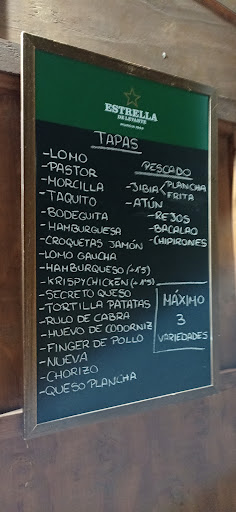 ESTRELLA
DE LEVANTE
TAPAS
-LOMO
-PASTOR
-MORCILLA
-TAQUITO
-BODEGUITA
-HAMBURGUESA
-CROQUETAS JAMÓN
-LOMO GAUCHA
-HAMBURQUESO (+1€)
-KRISPYCHICKEN (+1€)
-SECRETO QUESO
-TORTILLA PATATAS
-RULO DE CABRA
-HUEVO DE CODORNIZ
-FINGER DE POLLO
-NUEVA
-CHORIZO
-QUESO PLANCHA
PESCADO
-JIBIA < PLANCHA
FRITA
-ATÚN
-REJOS
-BACALAO
-CHIPIRONES
MÁXIMO
3
VARIEDADES